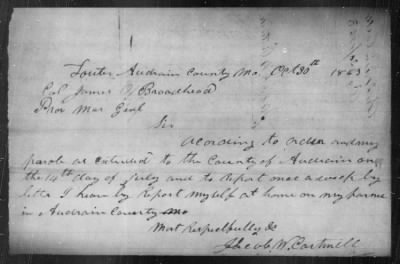 Audrain County Mo Oct 30th 1863
Col James O Broadhead
Prov Mar Genl
Sir
Acording to order and my
parole as extended to the County of Audrain on
the 14th day of July and to Report onc a week by
letter I hear by Report myself at home on my farme
in Audrain County Mo
Most Respectfully &c
Jacob W.